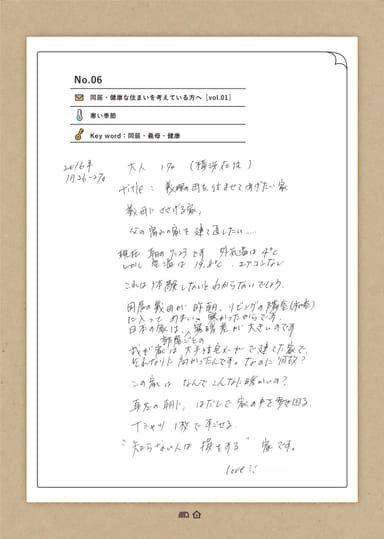 No.06
同居・健康な住まいを考えている方へ [vol.01]
寒い季節
Key word：同居・義母・健康
2016年
1月26-27日
大人 1名 (横浜在住)
Title : 義理の母を住ませてあげたい家
義母にささげる家,
今の実家の家を建て直したい.....
現在 朝の7:23です 外気温は4℃
しかし 室温は 19.8℃. エアコンなし
これは 体験しないとわからないでしょう.
同居の義母が 昨朝, リビングの隣室(和室)
に入って めまい. 寒かったからです.
日本の家は、部屋ごとの寒暖差が大きいのです
我が家は 大手住宅メーカーで建てた家で,
それなりに高かったんです. なのに何故?
この家は なんでこんなに暖かいの?
真冬の朝に, はだしで 家の中を歩き回る.
Tシャツ 1枚で すごせる.
"知らない人は 損をする" 家です.
love!!